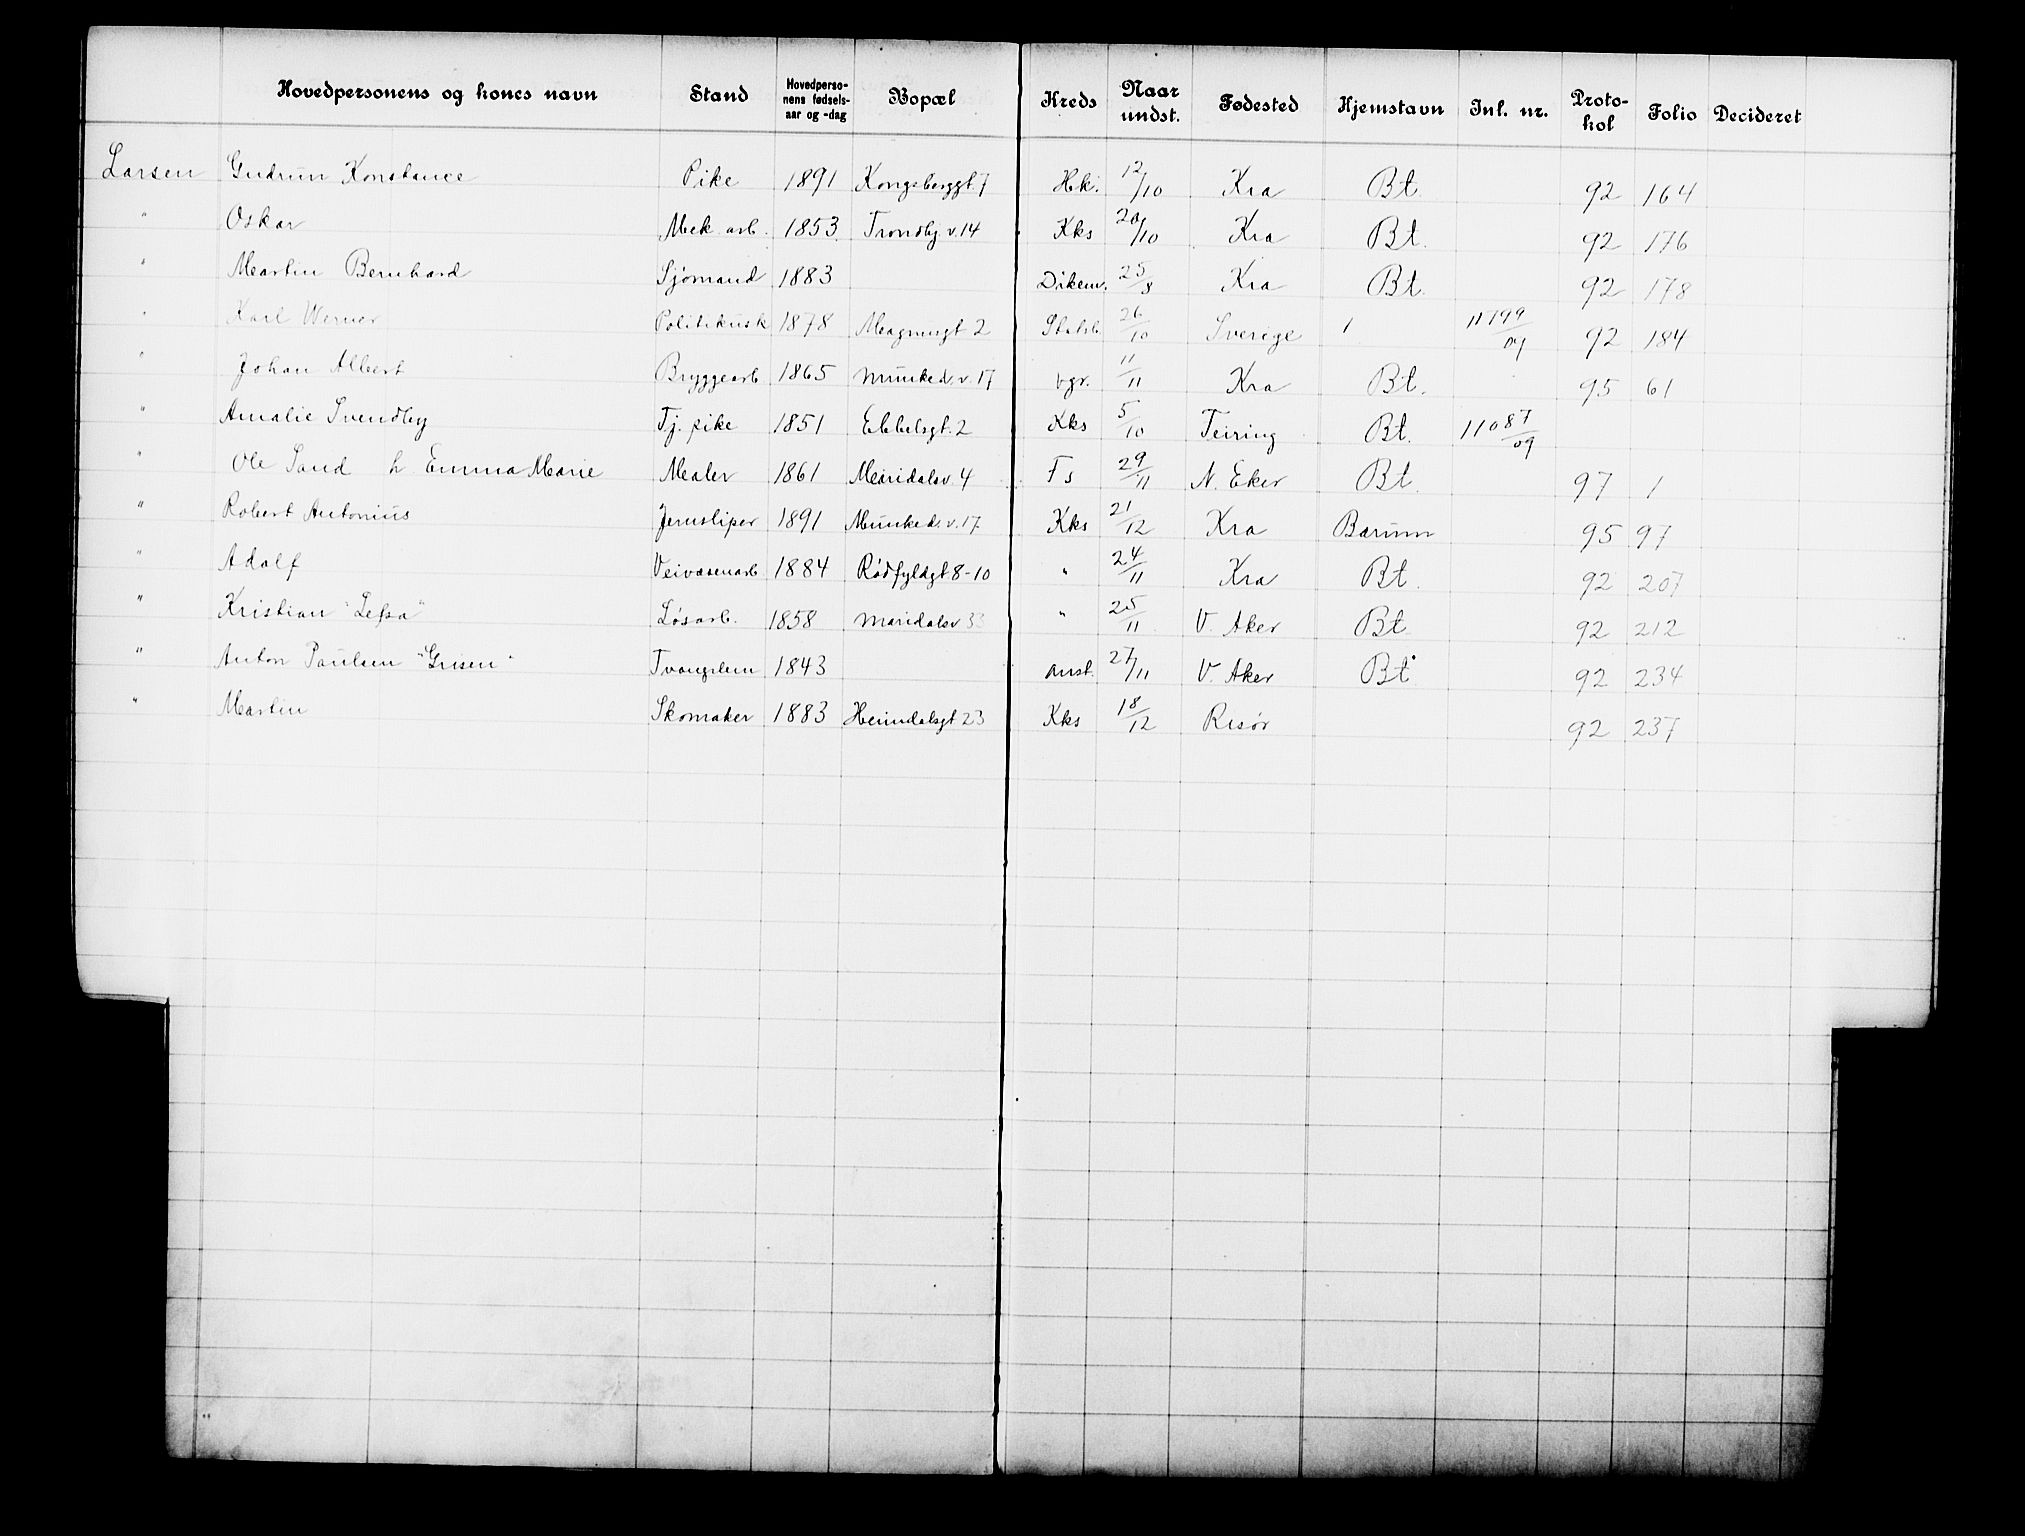 Hovedpersonens og kones navn Stand Hovedperso-nens fødsels-aar og -dag Bopæl Kreds Naar undst. Fødested Hjemstavn Inl. nr. Proto-kol Folio Decideret
Larsen Gudrun Konstance Pike 1891 Kongsberggt. 7 Hk. 12/10 Kra Bt. 92 164
" Oskar Mek. arb. 1853 Trondhj. v. 14 Kks 20/10 Kra Bt. 92 176
" Martin Bernhard Sjømand 1883 Dikem. 25/8 Kra Bt. 92 178
" Karl Werner Politikusk 1878 Magnusgt 2 26/10 Sverige 1 11799/09 92 184
" Johan Albert Bryggearb. 1865 Munked. v. 17 Vgr. 11/11 Kra Bt. 95 61
" Amalie Svendby Tj. pike 1851 Ebbelsgt. 2 Kks 5/10 Feiring Bt. 11087/09
" Ole Sand h Emma Marie Maler 1861 Maridalsv. 4 Fs 29/11 N. Eker Bt. 97 1
" Robert Antonius Jernsliper 1891 Munked. v. 17 Kks 21/12 Kra Bærum 95 97
" Adolf Veivæsenarb 1884 Rødfyldgt 8-10 " 24/11 Kra Bt. 92 207
" Kristian "Lefsa" Løsarb. 1858 Maridalsv 33 " 25/11 V. Aker Bt. 92 212
" Anton Paulsen "Grisen" Tvangslem 1843 Anst. 27/11 V. Aker Bt. 92 234
" Martin Skomaker 1883 Heimdalsgt 23 Kks 18/12 Risør 92 237